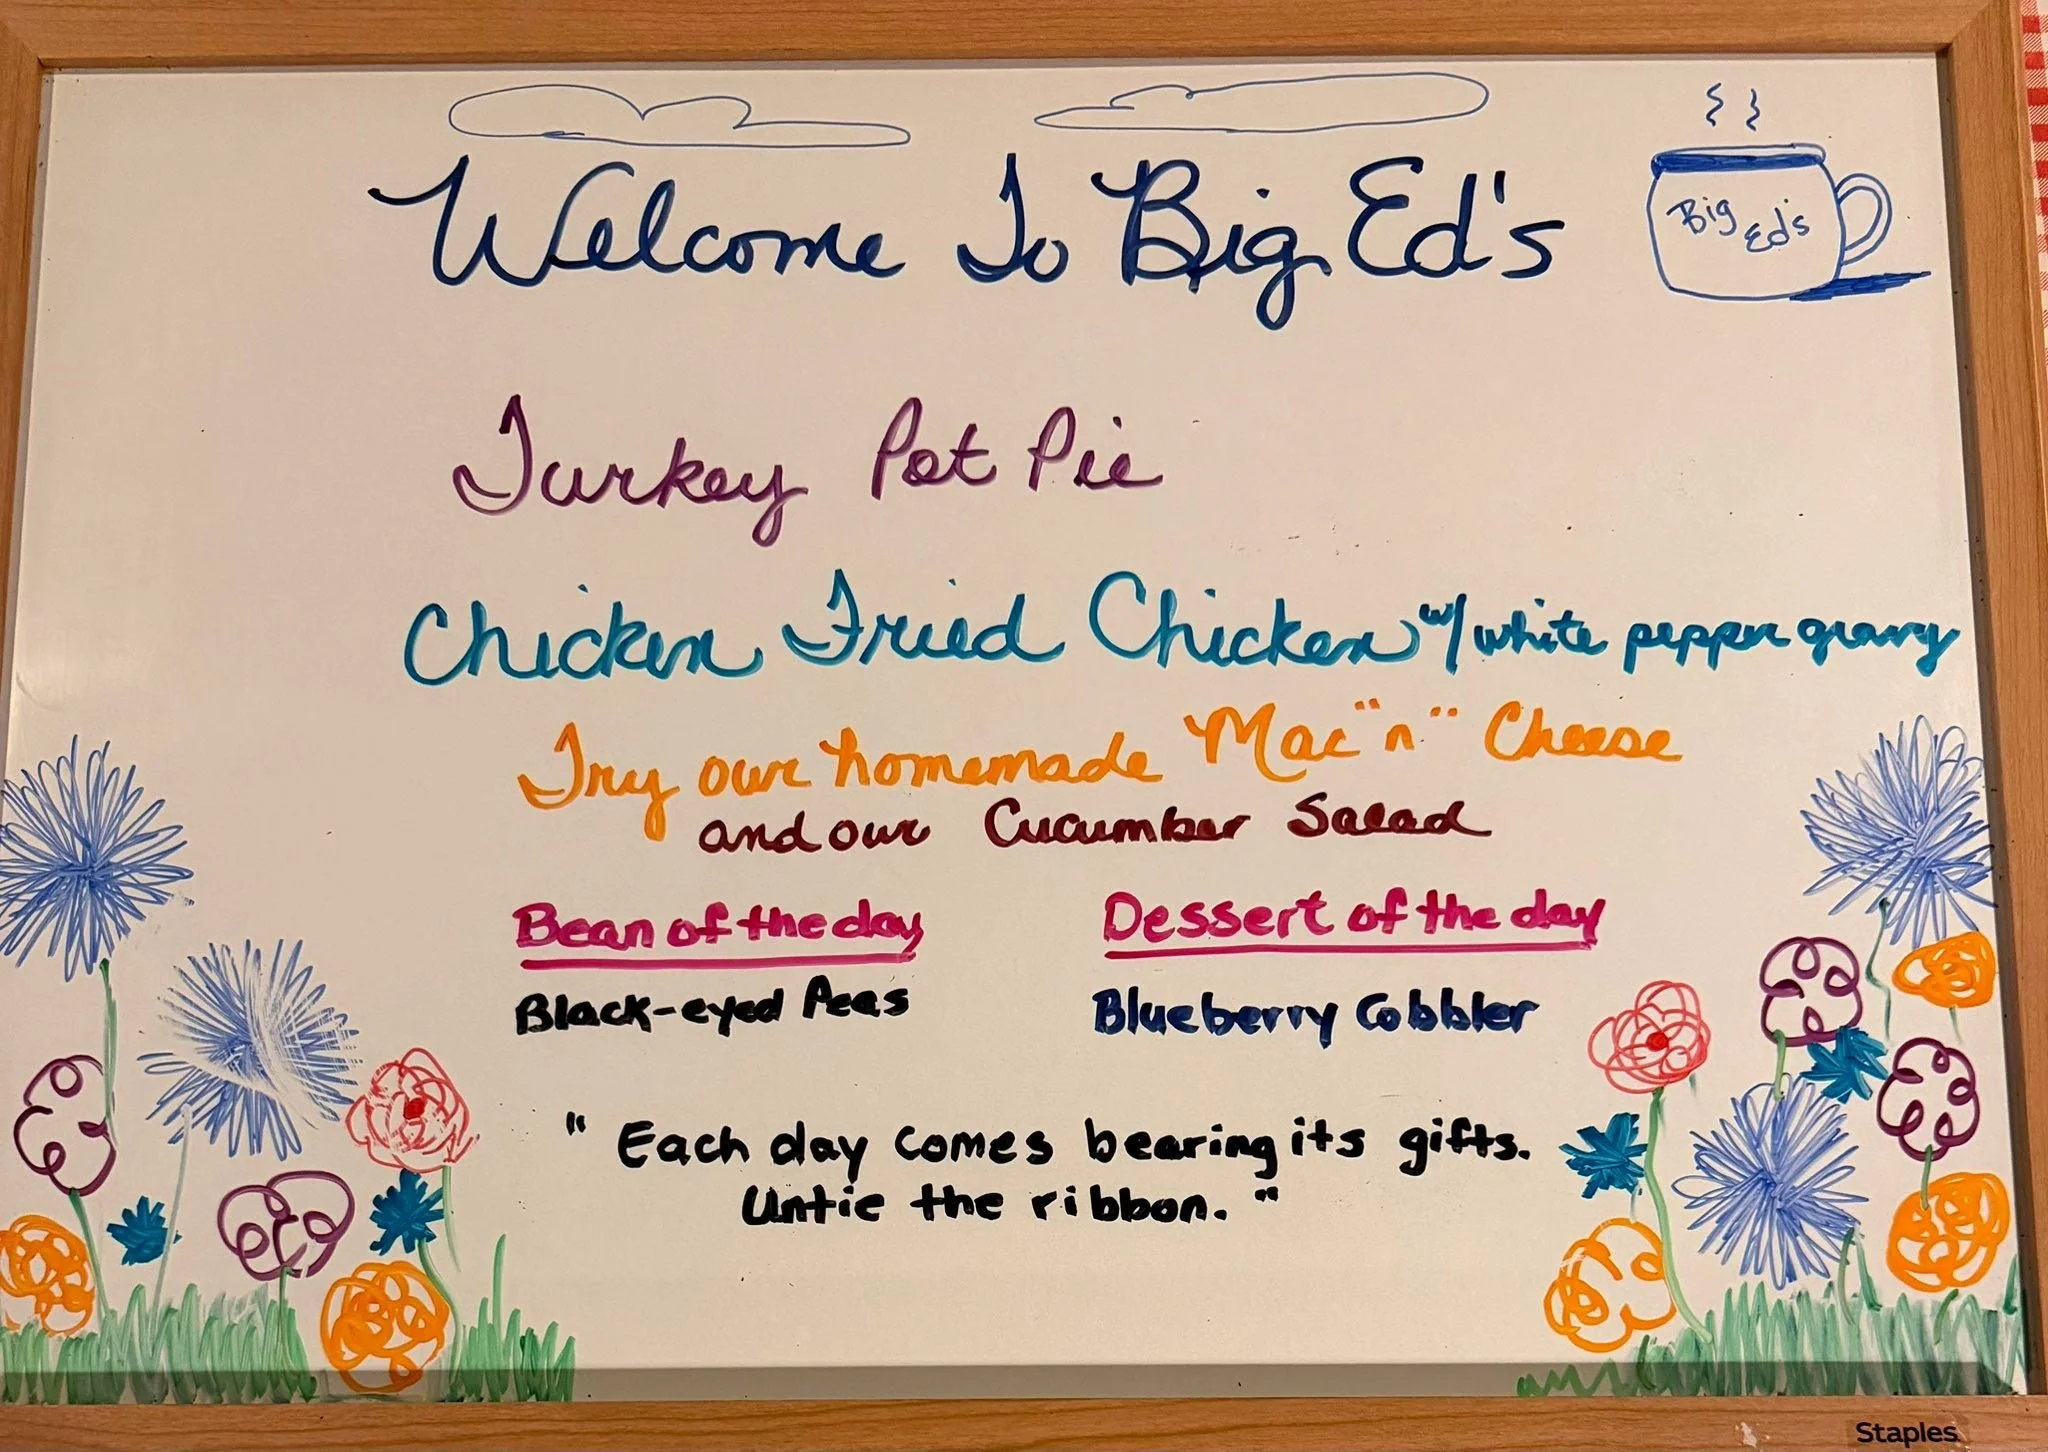 Welcome To Big Ed's
Big
Ed's
Turkey Pot Pie
Chicken Fried Chicken w/ white pepper gravy
Try our homemade Mac "n" Cheese
and our Cucumber Salad
Bean of the day
Black-eyed Peas
Dessert of the day
Blueberry Cobbler
" Each day comes bearing its gifts.
Untie the ribbon. "
Staples